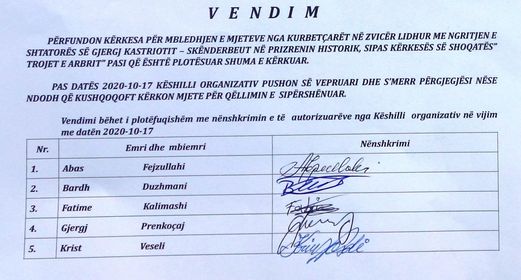 V E N D I M
PËRFUNDON KËRKESA PËR MBLEDHJEN E MJETEVE NGA KURBETÇARËT NË ZVICËR LIDHUR ME NGRITJEN E
SHTATORËS SË GJERGJ KASTRIOTIT – SKËNDERBEUT NË PRIZRENIN HISTORIK, SIPAS KËRKESËS SË SHOQATËS"
TROJET E ARBRIT" PASI QË ËSHTË PLOTËSUAR SHUMA E KËRKUAR.
PAS DATËS 2020-10-17 KËSHILLI ORGANIZATIV PUSHON SË VEPRUARI DHE S'MERR PËRGJEGJËSI NËSE
NDODH QË KUSHQOQOFT KËRKON MJETE PËR QËLLIMIN E SIPËRSHËNUAR.
Vendimi bëhet i plotëfuqishëm me nënshkrimin e të autorizuarëve nga Këshilli organizativ në vijim
me datën 2020-10-17
Nr. Emri dhe mbiemri Nënshkrimi
1. Abas Fejzullahi
2. Bardh Duzhmani
3. Fatime Kalimashi
4. Gjergj Prenkoçaj
5. Krist Veseli